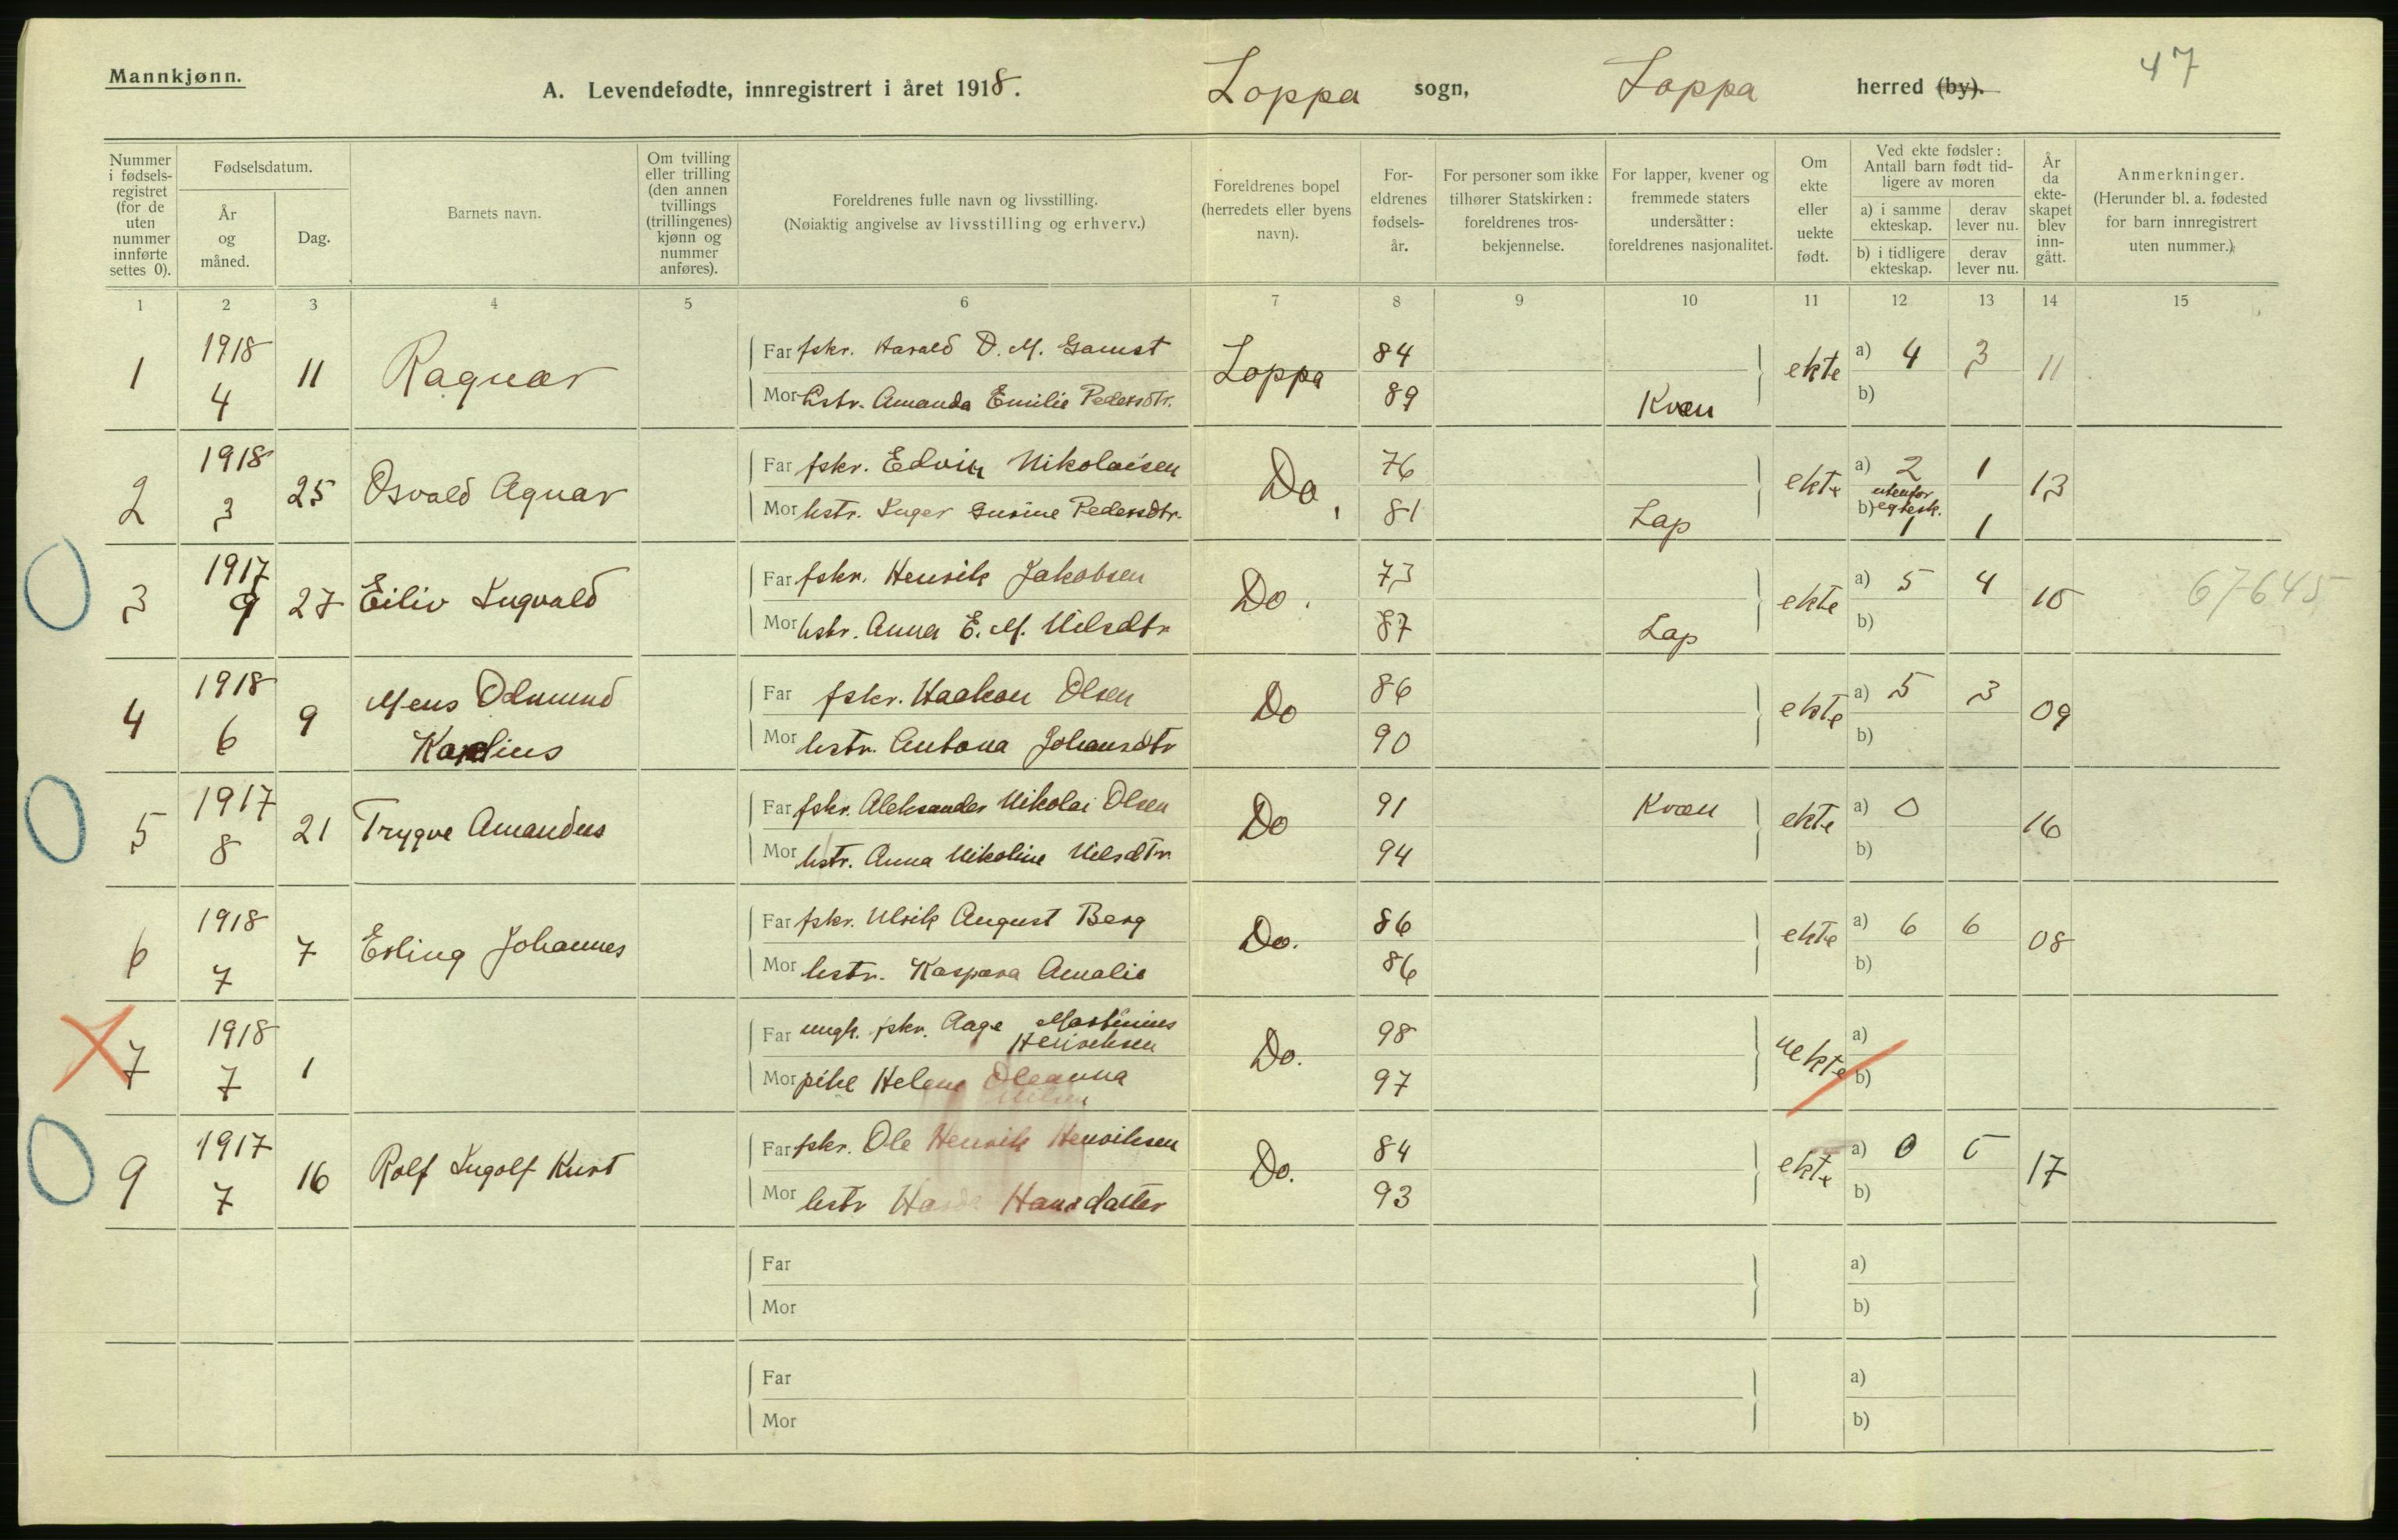 47
Mannkjønn.
A. Levendefødte, innregistrert i året 1918. Loppa sogn, Loppa herred (by).
Nummer i fødsels-registret (for de uten nummer innførte settes 0).
Fødselsdatum.
År og måned.
Dag.
Barnets navn.
Om tvilling eller trilling (den annen tvillings (trillingenes) kjønn og nummer anføres).
Foreldrenes fulle navn og livsstilling.
(Nøiaktig angivelse av livsstilling og erhverv.)
Foreldrenes bopel (herredets eller byens navn).
For-eldrenes fødsels-år.
For personer som ikke tilhører Statskirken: foreldrenes tros-bekjennelse.
For lapper, kvener og fremmede staters undersåtter: foreldrenes nasjonalitet.
Om ekte eller uekte født.
Ved ekte fødsler: Antall barn født tid-ligere av moren
a) i samme ekteskap.
derav lever nu.
b) i tidligere ekteskap.
derav lever nu.
År da ekte-skapet blev inn-gått.
Anmerkninger.
(Herunder bl. a. fødested for barn innregistrert uten nummer.)
1 2 3 4 5 6 7 8 9 10 11 12 13 14 15
1 1918 4 11 Ragnar
Far fskr. Harald D. M. Gamst Loppa 84 ekte a) 4 3 11
Mor hstr. Amanda Emilie Pedersdtr. 89 Kvæn b)
2 1918 3 25 Osvald Agnar
Far fskr. Edvin Nikolaisen Do. 76 ekte a) 2 1 13
Mor hstr. Inger Gurine Pedersdtr. 81 Lap b) utenfor egtesk. 1 1
3 1917 9 27 Eiliv Ingvald
Far fskr. Henrik Jakobsen Do. 73 ekte a) 5 4 10 67645
Mor hstr. Anna E. M. Nilsdtr 87 Lap b)
4 1918 6 9 Mens Odmund
Karelius
Far fskr. Haakon Olsen Do 86 ekte a) 5 3 09
Mor hstr. Antona Johansdtr 90 b)
5 1917 8 21 Trygve Amandus
Far fskr. Aleksander Nikolai Olsen Do 91 Kvæn ekte a) 0 16
Mor hstr. Anna Nikoline Nilsdtr 94 b)
6 1918 7 7 Erling Johannes
Far fskr. Ulrik August Berg Do. 86 ekte a) 6 6 08
Mor hstr. Kaspara Amalie 86 b)
7 1918 7 1
Far ungk. fskr. Aage Martinius
Henriksen Do. 98 uekte a)
Mor pike Helene Oleanna
Nilsen 97 b)
9 1917 7 16 Rolf Ingolf Kurt
Far fskr. Ole Henrik Henriksen Do. 84 ekte a) 0 17
Mor hstr Hansdatter 93 b)
Far a)
Mor b)
Far a)
Mor b)